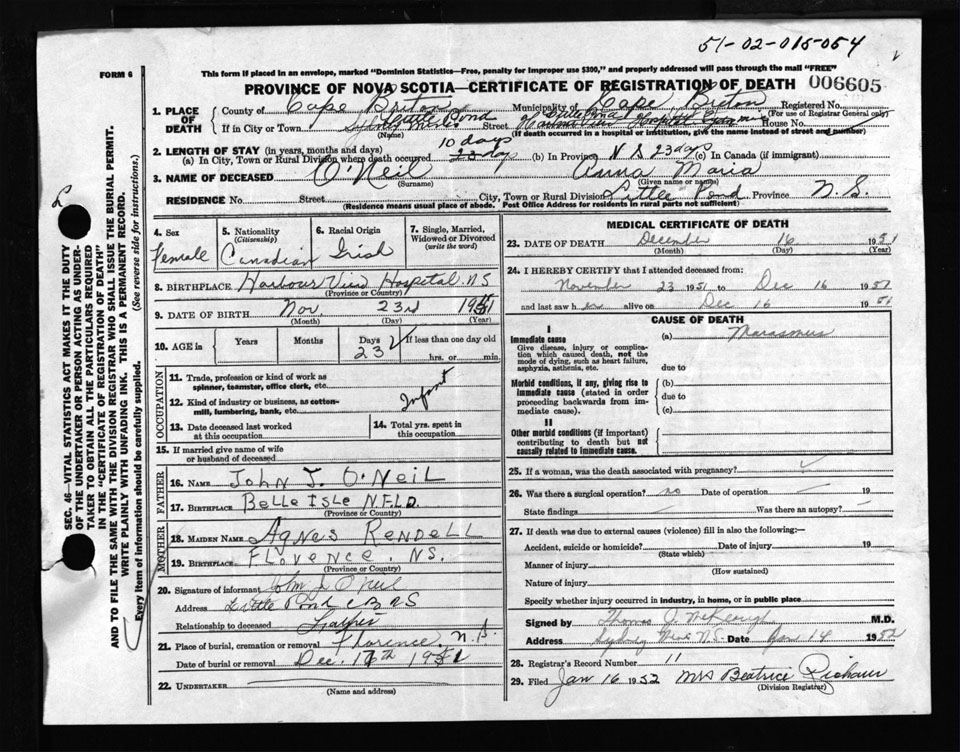 51-02-015-054
FORM 6
This form if placed in an envelope, marked "Dominion Statistics—Free, penalty for improper use $300," and properly addressed will pass through the mail "FREE"
PROVINCE OF NOVA SCOTIA—CERTIFICATE OF REGISTRATION OF DEATH 006605
1. PLACE OF DEATH County of Cape Breton Municipality of Cape Breton Registered No.
(For use of Registrar General only)
If in City or Town Little Pond Street Harbour View Hospital House No.
(Name) (If death occurred in a hospital or institution, give the name instead of street and number)
2. LENGTH OF STAY (in years, months and days) 10 days
(a) In City, Town or Rural Division where death occurred 23 days (b) In Province N S 23 days (c) In Canada (if immigrant)
3. NAME OF DECEASED O'Neil Anna Maria
(Surname) (Given name or names)
RESIDENCE No. Street City, Town or Rural Division Little Pond Province N.S.
(Residence means usual place of abode. Post Office Address for residents in rural parts not sufficient)
SEC. 46—VITAL STATISTICS ACT MAKES IT THE DUTY
OF THE UNDERTAKER OR PERSON ACTING AS UNDER-
TAKER TO OBTAIN ALL THE PARTICULARS REQUIRED
IN THE "CERTIFICATE OF REGISTRATION OF DEATH" AND
TO FILE THE SAME WITH THE DIVISION REGISTRAR WHO SHALL ISSUE THE BURIAL PERMIT.
WRITE PLAINLY WITH UNFADING INK. THIS IS A PERMANENT RECORD.
Every item of information should be carefully supplied. (See reverse side for instructions.)
4. Sex Female
5. Nationality (Citizenship) Canadian
6. Racial Origin Irish
7. Single, Married, Widowed or Divorced (write the word)
8. BIRTHPLACE Harbour View Hospital. NS
(Province or Country)
9. DATE OF BIRTH Nov. 23rd 1951
(Month) (Day) (Year)
10. AGE in Years Months Days 23 If less than one day old
hrs. or min.
OCCUPATION
11. Trade, profession or kind of work as
spinner, teamster, office clerk, etc.
12. Kind of industry or business, as cotton-
mill, lumbering, bank, etc. Infant
13. Date deceased last worked
at this occupation
14. Total yrs. spent in
this occupation
15. If married give name of wife
or husband of deceased
FATHER
16. NAME John J. O'Neil
17. BIRTHPLACE Belle Isle N.F.L.D.
(Province or Country)
MOTHER
18. MAIDEN NAME Agnes Rendell
19. BIRTHPLACE Florence. NS.
(Province or Country)
20. Signature of informant John J O'Neil
Address Little Pond CB NS
Relationship to deceased Father
21. Place of burial, cremation or removal Florence, N.S.
Date of burial or removal Dec. 17th 1951
22. UNDERTAKER
(Name and address)
MEDICAL CERTIFICATE OF DEATH
23. DATE OF DEATH December 16 1951
(Month) (Day) (Year)
24. I HEREBY CERTIFY that I attended deceased from:
November 23 1951 to Dec 16 1951
and last saw her alive on Dec 16 1951
CAUSE OF DEATH
I
Immediate cause (a) Marasmus
Give disease, injury or complica-
tion which caused death, not the
mode of dying, such as heart failure,
asphyxia, asthenia, etc.
due to
Morbid conditions, if any, giving rise to (b)
immediate cause (stated in order due to
proceeding backwards from im-
mediate cause). (c)
II
Other morbid conditions (if important)
contributing to death but not
causally related to immediate cause.
25. If a woman, was the death associated with pregnancy?
26. Was there a surgical operation? no Date of operation 19
State findings Was there an autopsy?
27. If death was due to external causes (violence) fill in also the following:—
Accident, suicide or homicide? Date of injury 19
(State which)
Manner of injury
(How sustained)
Nature of injury
Specify whether injury occurred in industry, in home, or in public place
Signed by Thomas J. McKeough M.D.
Address Sydney Mines N.S. Date Jan 14 1952
28. Registrar's Record Number 11
29. Filed Jan 16 1952 Mrs Beatrice
(Division Registrar)